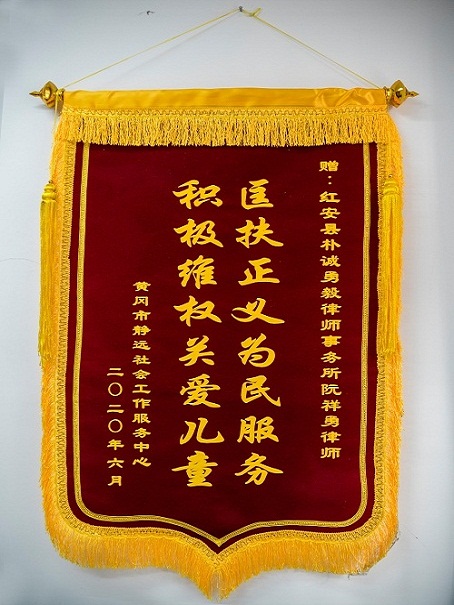 赠：红安县朴诚勇毅律师事务所阮祥勇律师
匡扶正义为民服务
积极维权关爱儿童
黄冈市静远社会工作服务中心
二〇二〇年六月